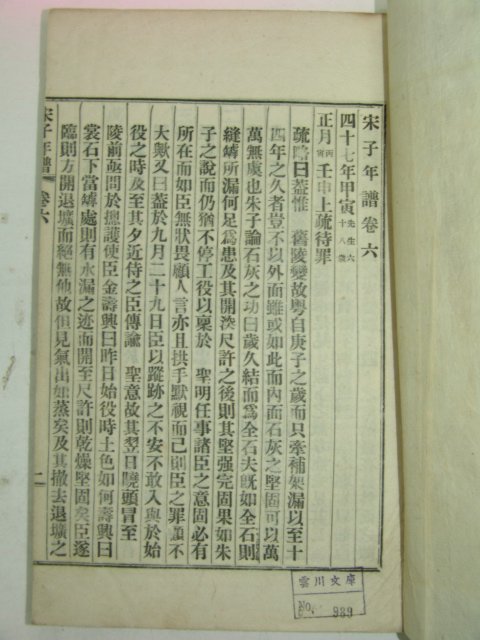 宋子年譜卷六
四十七年甲寅先生六十八歲
正月丙寅壬申上疏待罪
疏略曰蓋惟 舊陵變故粤自庚子之歲而只牽補架漏以至十
四年之久者豈不以外面雖或如此而內面石灰之堅固可以萬
萬無虞也朱子論石灰之功曰歲久結而爲全石夫旣如全石則
縫罅所漏何足爲患及其開深尺許之後則其堅强完固果如朱
子之說而仍猶不停工役以稟於 聖明任事諸臣之意固必有
所在而如臣無狀畏顧人言亦且拱手默視而已則臣之罪顧不
大歟又曰蓋於九月二十九日臣以蹤跡之不安不敢入與於始
役之時及至其夕近侍之臣傳諭 聖意故其翌日曉頭冒至
陵前亟問於摠護使臣金壽興曰昨日始役時土色如何壽興曰
裳石下當罅處則有水漏之迹而開至尺許則乾燥堅固矣臣遂
臨則方開退壙而絕無他故俱見氣出如蒸矣及其撤去退壙之
宋子年譜 卷六
二
雲川文庫
No. 939